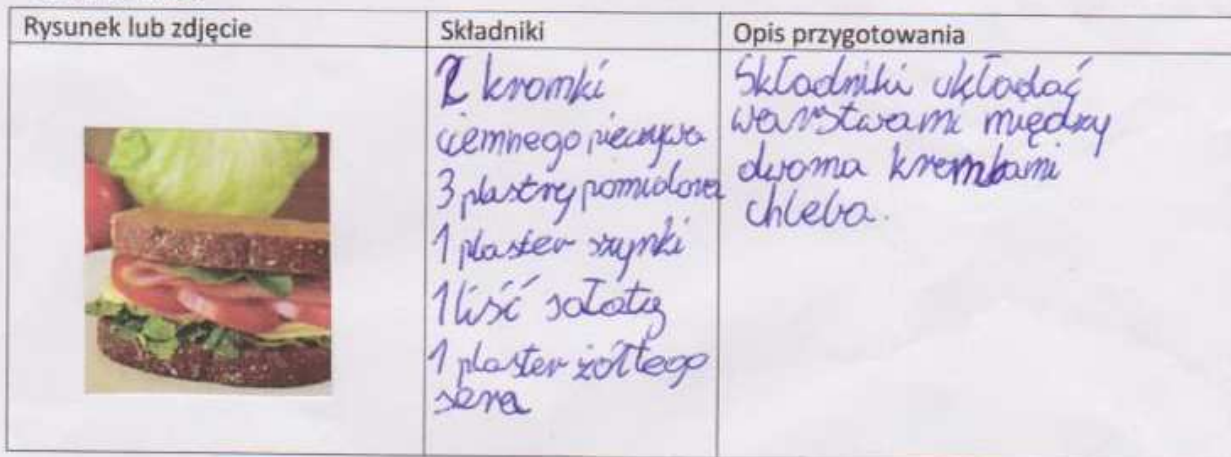 Rysunek lub zdjęcie
Składniki
Opis przygotowania
2 kromki
ciemnego pieczywa
3 plastry pomidora
1 plaster szynki
1 liść sałaty
1 plaster żółtego
sera
Składniki układać
warstwami między
dwoma kromkami
chleba.